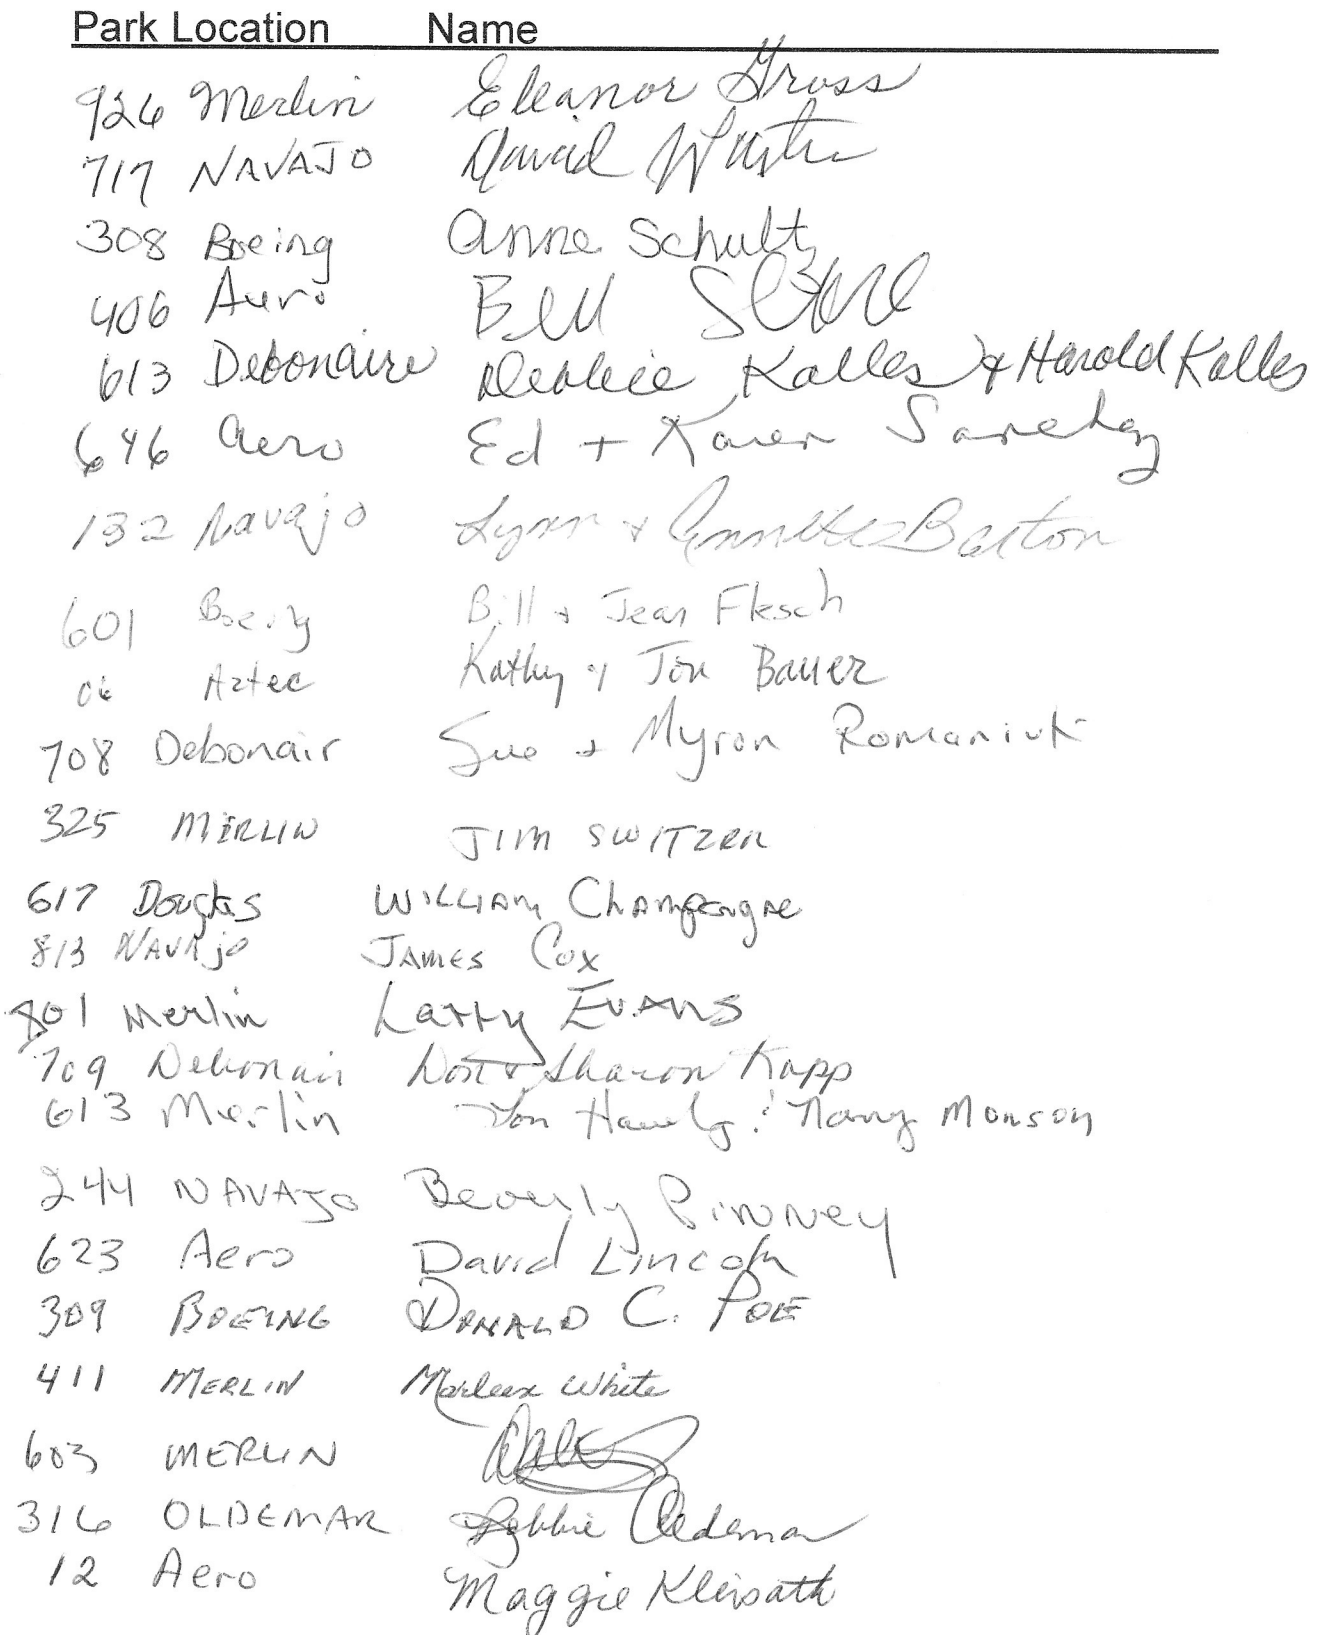 Park Location Name
926 Merlin Eleanor Gross
717 NAVAJO David
308 Boeing Anne Schult
406 Aero Bill
613 Debonaire Debbie Kalles & Harold Kalles
646 Aero Ed + Karen Sanchez
132 Navajo Lynn & Annette Barton
601 Boeing Bill & Jean Flesch
06 Aztec Kathy & Jon Bauer
708 Debonair Sue + Myron Romaniuk
325 MERLIN JIM SWITZER
617 Douglas WILLIAM Champagne
813 NAVAjo JAMES Cox
801 Merlin Larry EVANS
709 Debonair Don & Sharon Kapp
613 Merlin Jon & Nancy Monson
244 NAVAJO Beverly Pinney
623 Aero David Lincoln
309 BOEING DONALD C. POE
411 MERLIN Marleen White
603 MERLIN
316 OLDEMAR Debbie Oldeman
12 Aero Maggie Kleisath